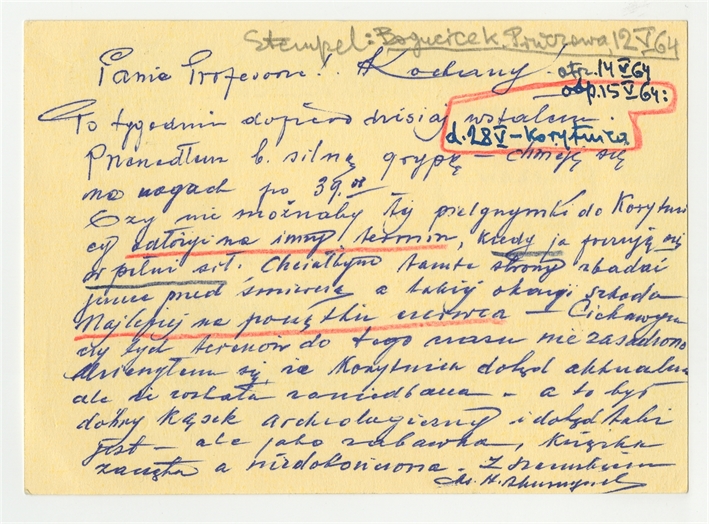 Stempel: Bogucice k. Pińczowa, 12 V 64
Panie Profesorze! Kochany!
otr. 14 V 64
odp. 15 V 64:
d. 28 V – Korytnica
Po tygodniu dopiero dzisiaj wstałem.
Przeszedłem b. silną grypę – chwieję się
na nogach po 39.
Czy nie możnaby tej pielgrzymki do Korytni
cy odłożyć na inny termin, kiedy ja poczuję się
w pełni sił. Chciałbym tamte strony zbadać
jeszcze przed śmiercią a takiej okazji szkoda
Najlepiej na początku czerwca – Ciekawym
czy tych terenów do tego czasu nie zasadzono
się że Korytnica dotąd aktualna
ale że została zaniedbana – a to był
dobry kąsek archeologiczny i dotąd taki
jest – ale jako zabawka, książka
zaczęta a niedokończona. Z szacunkiem